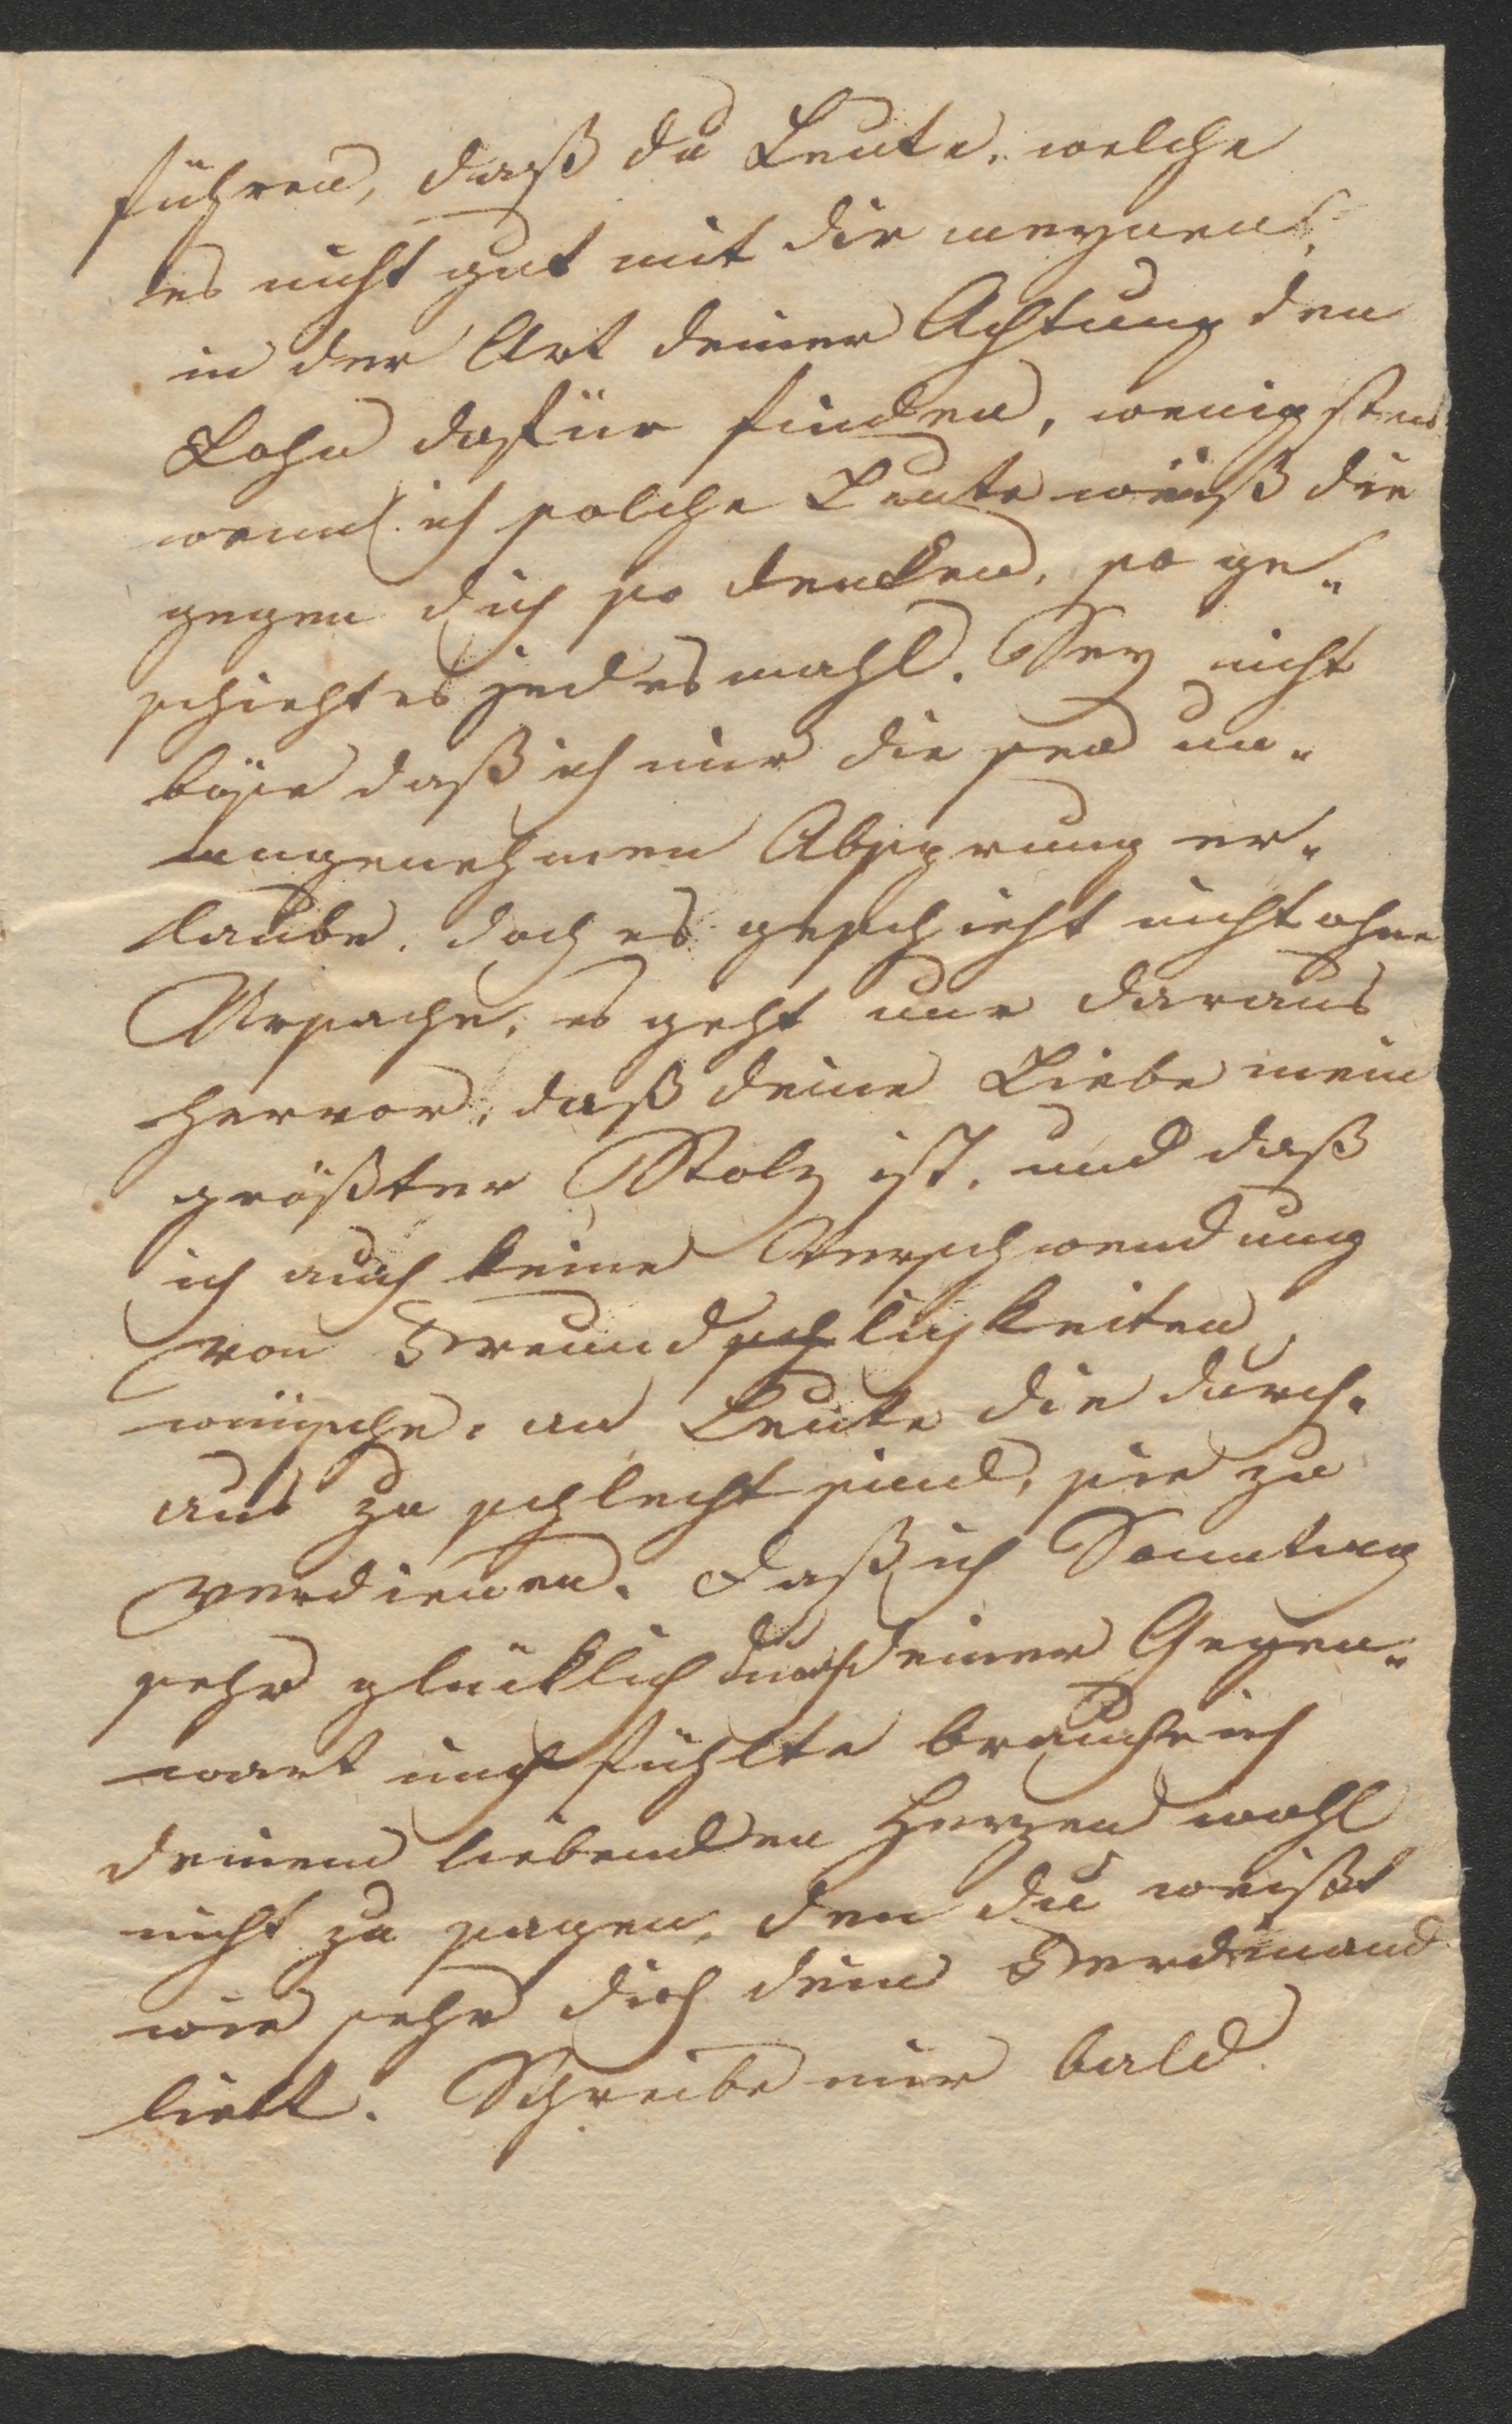 führen, daß du Leute, welche
es nicht gut mit dir meynen,
in der Art deiner Achtung den
Lohn dafür finden, wenigstens
wenn ich solche Leute weiß die
gegen dich so denken, so ge-
schieht es jedesmahl. Sey nicht
böse daß ich mir diesen un-
angenehmen Absprung er-
laube, doch es geschieht nicht ohne
Ursache, es geht nur daraus
hervor, daß deine Liebe mein
größter Stolz ist, und daß
ich auch keine Verschwendung
von Freundschlichkeiten
wünsche, an Leute die durch-
aus zu schlecht sind, sie zu
verdienen. Daß ich Sonntag
sehr glücklich durch deiner Gegen-
wart mich fühlte brauche ich
deinem liebenden Herzen wohl
nicht zu sagen, den du weißt
wie sehr dich dein Ferdinand
liebt. Schreibe mir bald